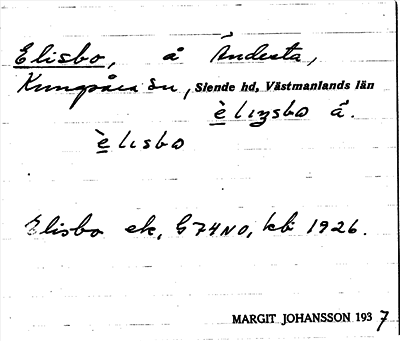 Elisbo, å Ändesta,
Kungsåra sn, Siende hd, Västmanlands län
è lızsbo å.
è lısbo
Elisbo ek, G74NO, kb 1926.
MARGIT JOHANSSON 1937